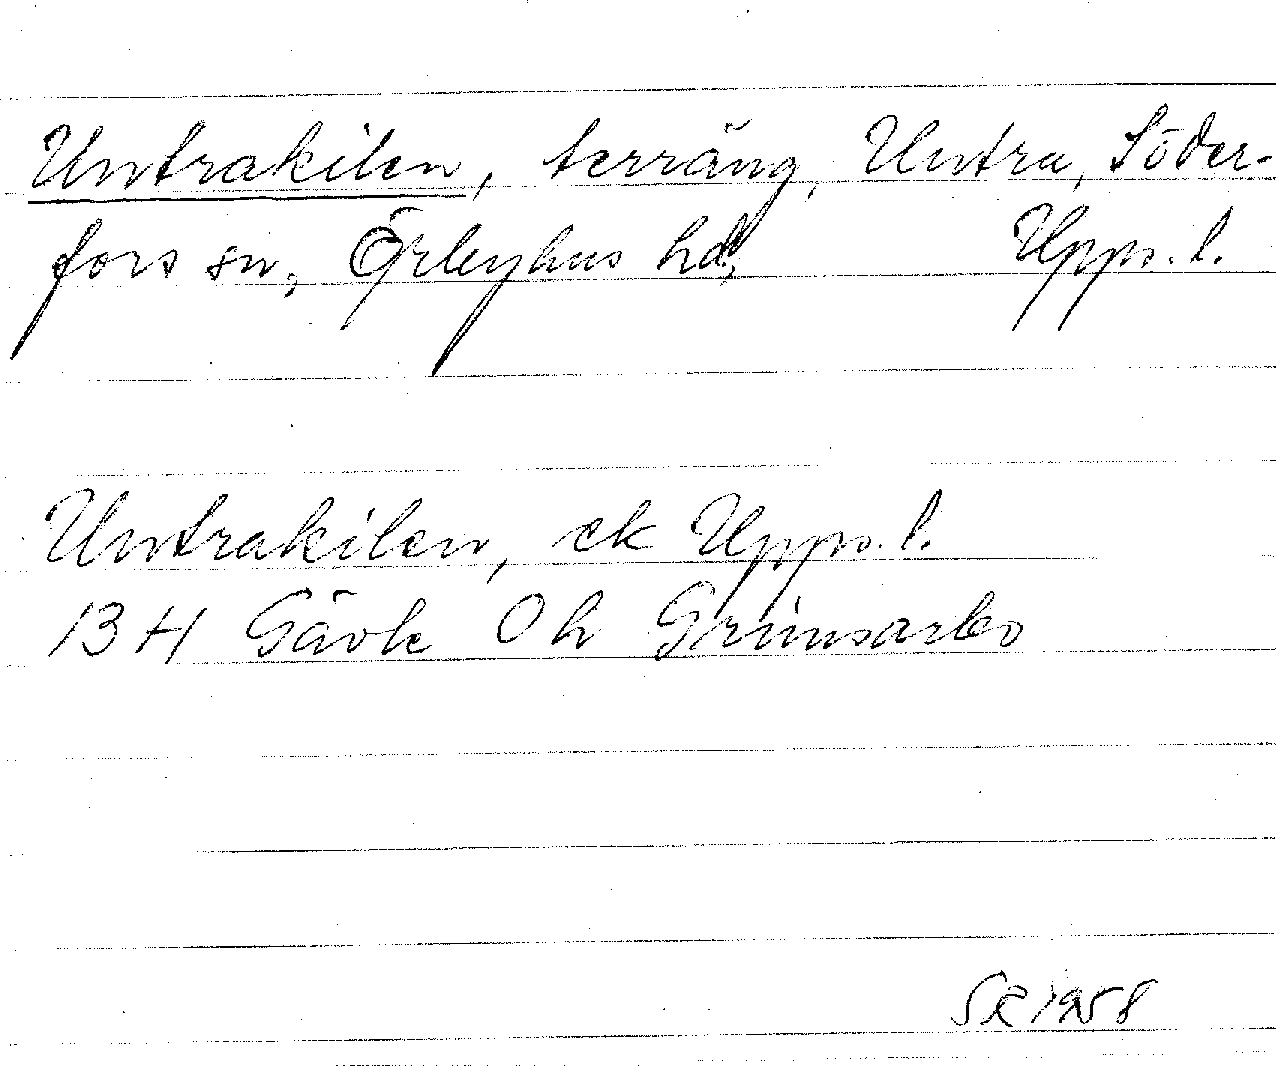 Untrakilen, terräng, Untra, Söder-
fors sn, Örbyhus hd, Upps. l.
Untrakilen, ek Upps. l.
13 H Gävle 0 h Grimsarbo
SR 1958